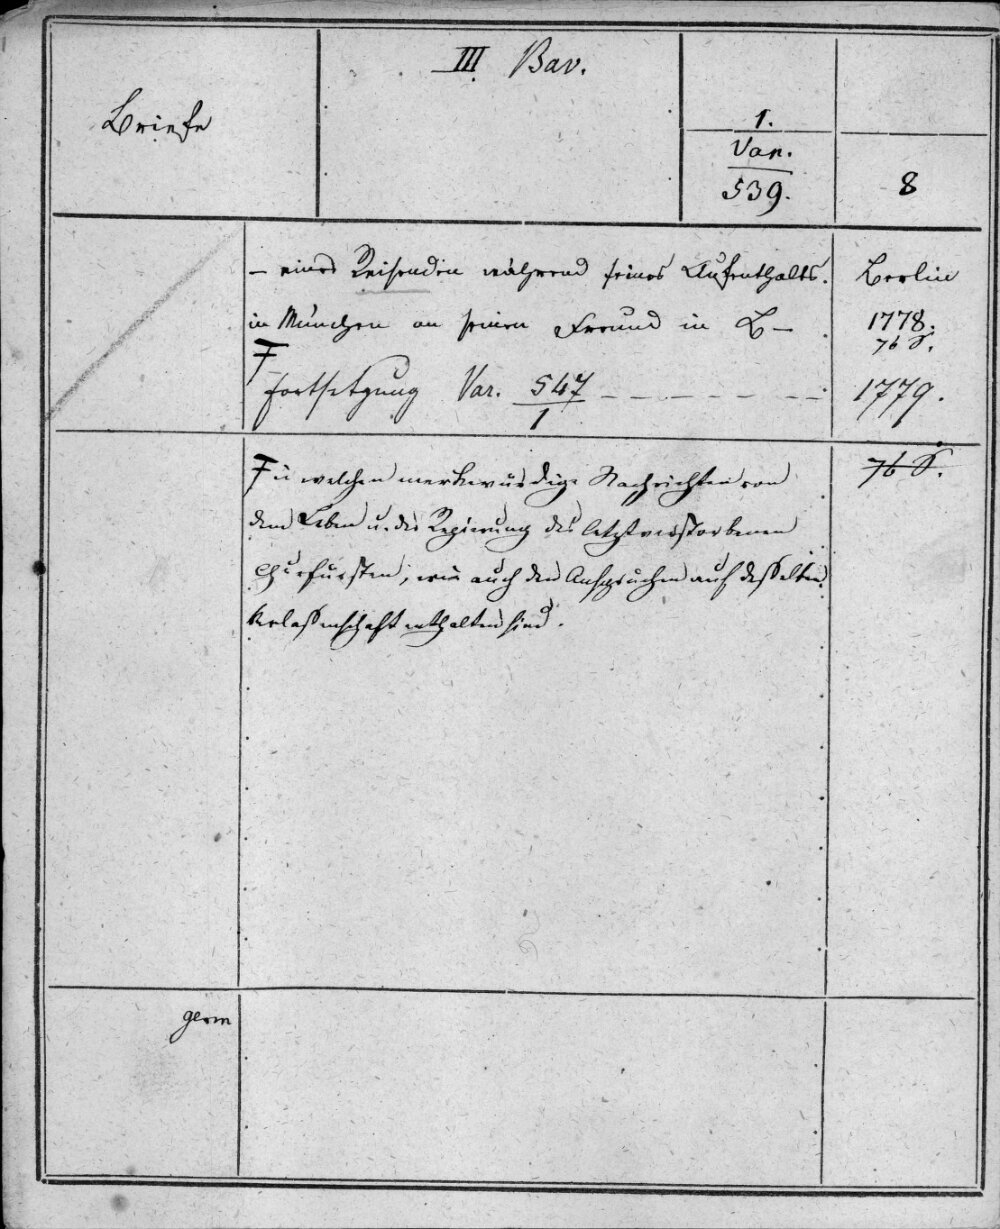 III Bav.
Briefe
1.
Var.
539.
8
– eines Reisenden während seines Aufenthalts
in München an seinen Freund in B–
Berlin
1778.
76 S.
Fortsetzung Var. 547
1
1779.
in welchen merkwürdige Nachrichten von
dem Leben u. der Regierung des letztverstorbenen
Churfürsten, wie auch den Ansprüchen auf desselben
Verlassenschaft enthalten sind.
76 S.
germ